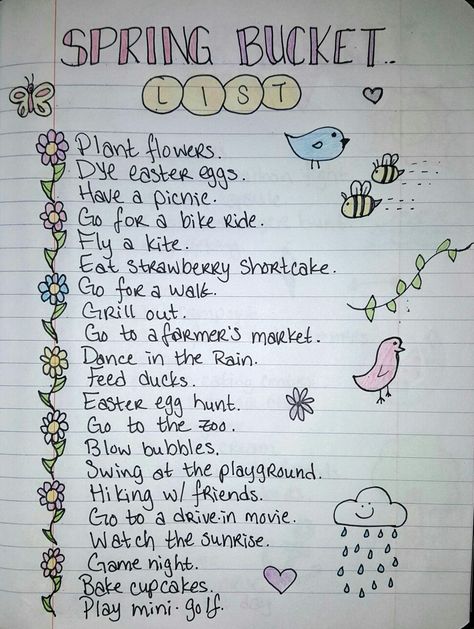 SPRING BUCKET..
LIST
Plant flowers.
Dye easter eggs.
Have a picnic.
Go for a bike ride.
Fly a kite.
Eat strawberry shortcake.
Go for a walk.
Grill out.
Go to a farmer's market.
Dance in the Rain.
Feed ducks.
Easter egg hunt.
Go to the zoo.
Blow bubbles.
Swing at the playground.
Hiking w/ friends.
Go to a drive-in movie.
Watch the sunrise.
Game night.
Bake cupcakes.
Play mini-golf.